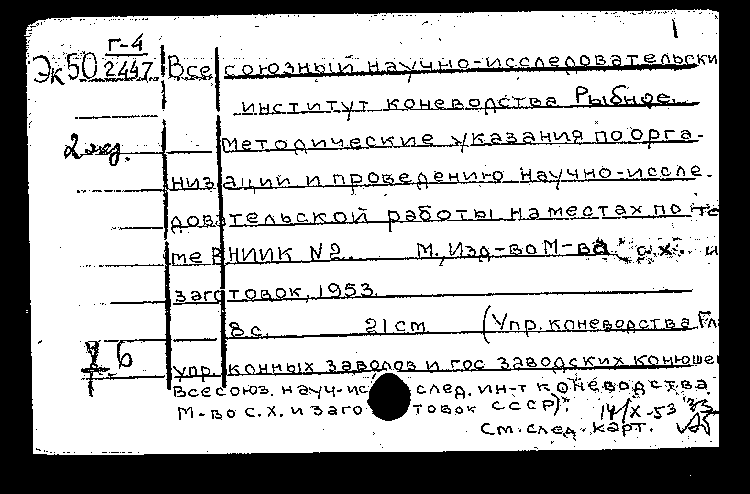 1
Эк50 Г-4/2447 Всесоюзный научно-исследовательски
институт коневодства Рыбное.
2 экз. Методические указания по орга-
низации и проведению научно-иссле-
довательской работы на местах по те
ме ВНИИК №2. М., Изд-во М-ва с.х. и
заготовок, 1953.
8 с. 21 см (Упр. коневодства Гла
упр. конных заводов и гос заводских конюшен
Всесоюз. науч-исслед. ин-т коневодства
М-во с.х. и заготовок СССР).
14/X-53
См. след. карт.